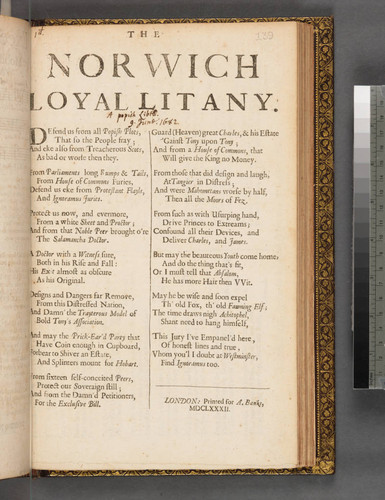 THE
NORWICH
LOYAL LITANY.
A popish Libell.
9. June. 1682
139
DEfend us from all Popish Plots,
That so the People fray;
And eke also from Treacherous Scots,
As bad or worse then they.
From Parliaments long Rumps & Tails,
From House of Commons Furies,
Defend us eke from Protestant Flayls,
And Ignoramus Juries.
Protect us now, and evermore,
From a White Sheet and Proctor;
And from that Noble Peer brought o're
The Salamancha Doctor.
A Doctor with a Witness sure,
Both in his Rise and Fall:
His Exit almost as obscure
As his Original.
Designs and Dangers far Remove,
From this Distressed Nation,
And Damn' the Trayterous Model of
Bold Tony's Association.
And may the Prick-Ear'd Party that
Have Coin enough in Cupboard,
Forbear to Shiver an Estate,
And Splinters mount for Hubart.
From sixteen self-conceited Peers,
Protect our Soveraign still;
And from the Damn'd Petitioners,
For the Exclusive Bill.
Guard (Heaven) great Charles, & his Estate
'Gainst Tony upon Tony;
And from a House of Commons, that
Will give the King no Money.
From those that did design and laugh,
At Tangier in Distress;
And were Mahometans worse by half,
Then all the Moors of Fez.
From such as with Usurping hand,
Drive Princes to Extreams;
Confound all their Devices, and
Deliver Charles, and James.
But may the beauteous Youth come home,
And do the thing that's fit,
Or I must tell that Absalom,
He has more Hair then VVit.
May he be wise and soon expel
Th' old Fox, th' old Fawning Elf;
The time draws nigh Achitophel,
Shant need to hang himself,
This Jury I've Empanel'd here,
Of honest lines and true,
Whom you'l I doubt at Westminster,
Find Ignoramus too.
LONDON: Printed for A. Banks,
MDCLXXXII.